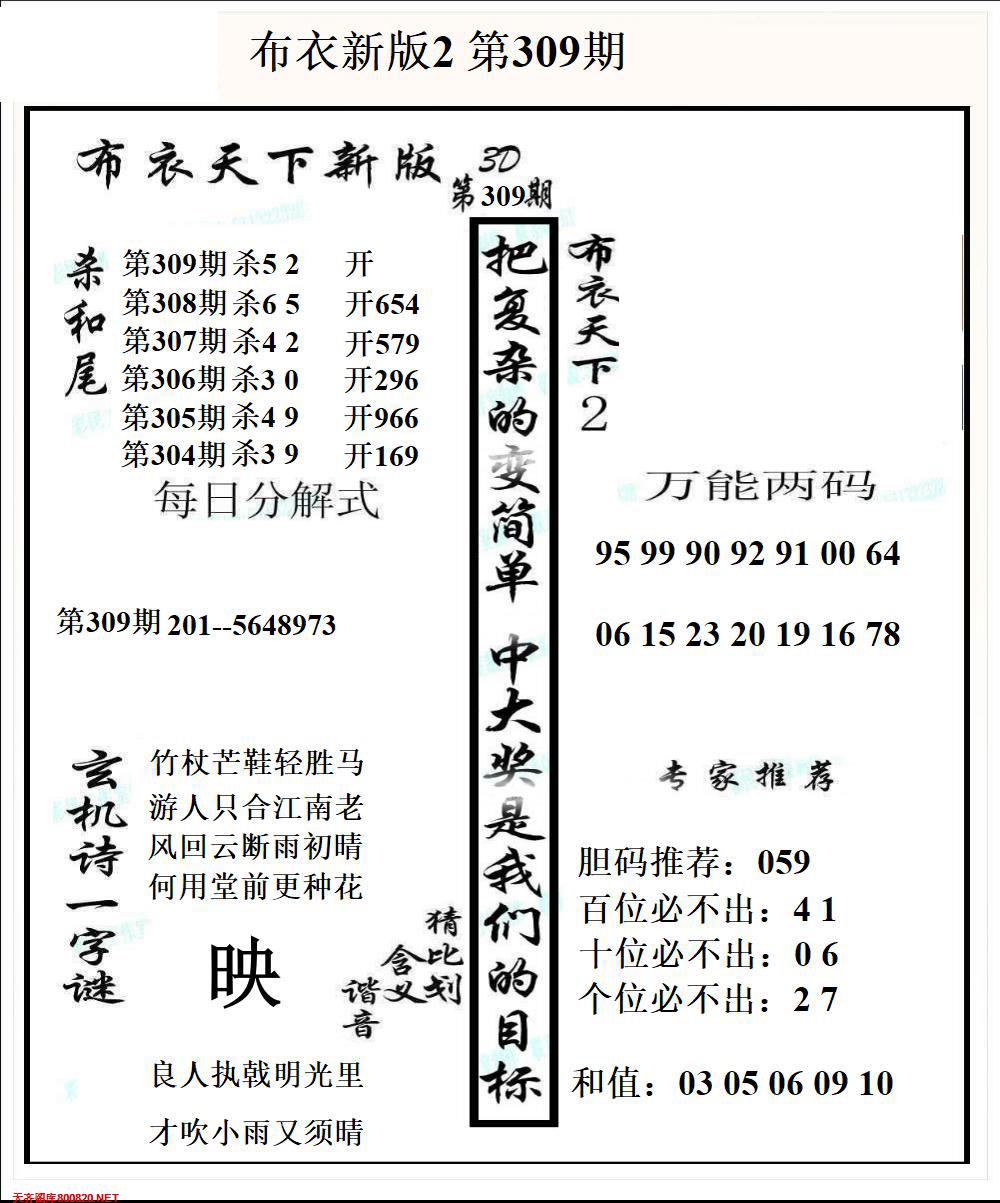 布衣新版2 第309期
布衣天下新版 3D
第309期
杀和尾
第309期 杀5 2 开
第308期 杀6 5 开654
第307期 杀4 2 开579
第306期 杀3 0 开296
第305期 杀4 9 开966
第304期 杀3 9 开169
每日分解式
第309期 201--5648973
玄机诗一字谜
竹杖芒鞋轻胜马
游人只合江南老
风回云断雨初晴
何用堂前更种花
映
猜比划
含义
谐音
良人执戟明光里
才吹小雨又须晴
把复杂的变简单 中大奖是我们的目标
布衣天下2
万能两码
95 99 90 92 91 00 64
06 15 23 20 19 16 78
专家推荐
胆码推荐：059
百位必不出：4 1
十位必不出：0 6
个位必不出：2 7
和值：03 05 06 09 10
天齐图库800820.NET